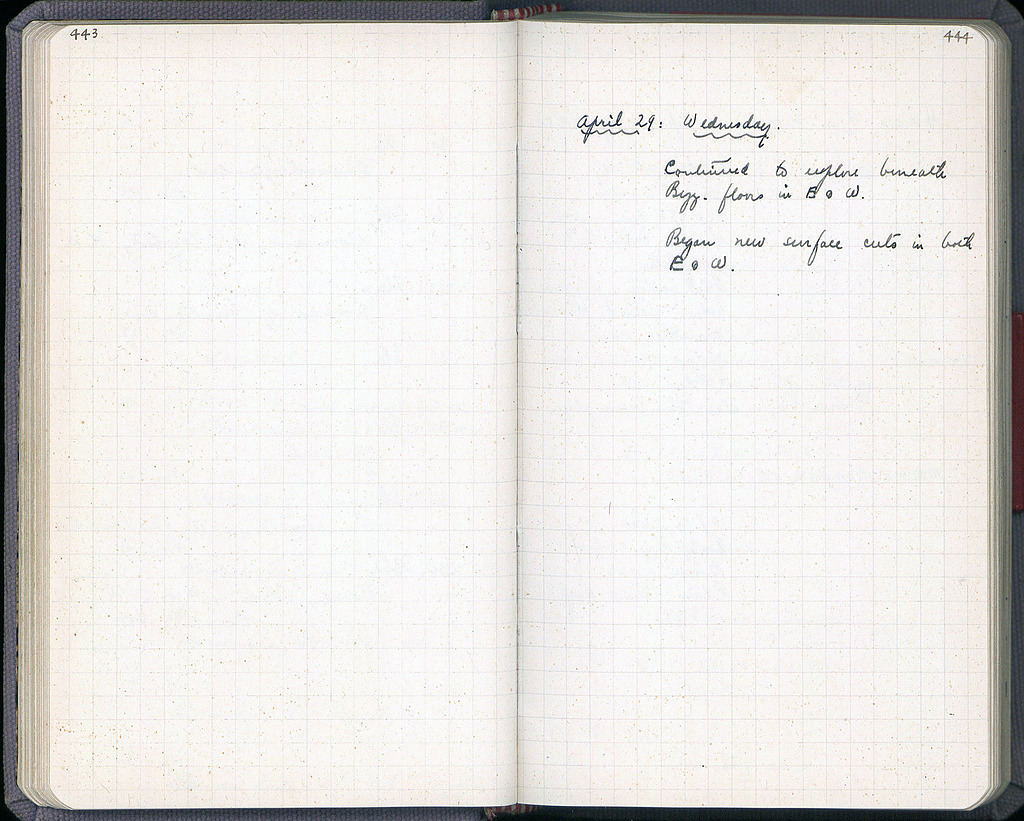 443
444
April 29: Wednesday.
Continued to explore beneath
Byz. floors in E & W.
Began new surface cuts in both
E & W.